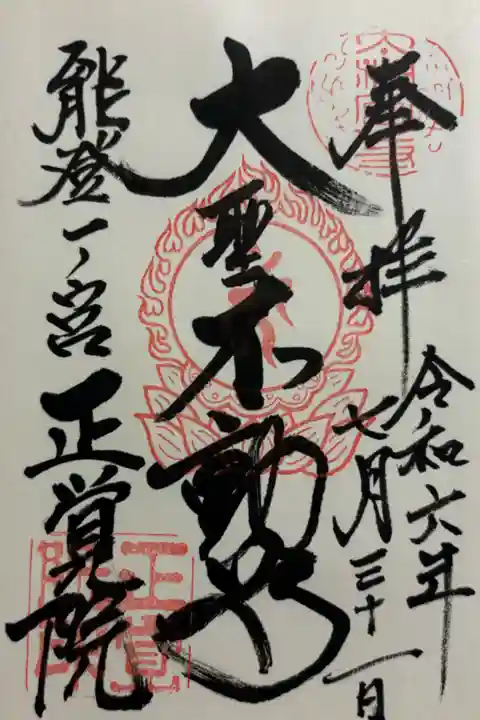 奉拝
令和六年
七月三十一日
大聖不動明
能登一ノ宮 正覚院
正覚院